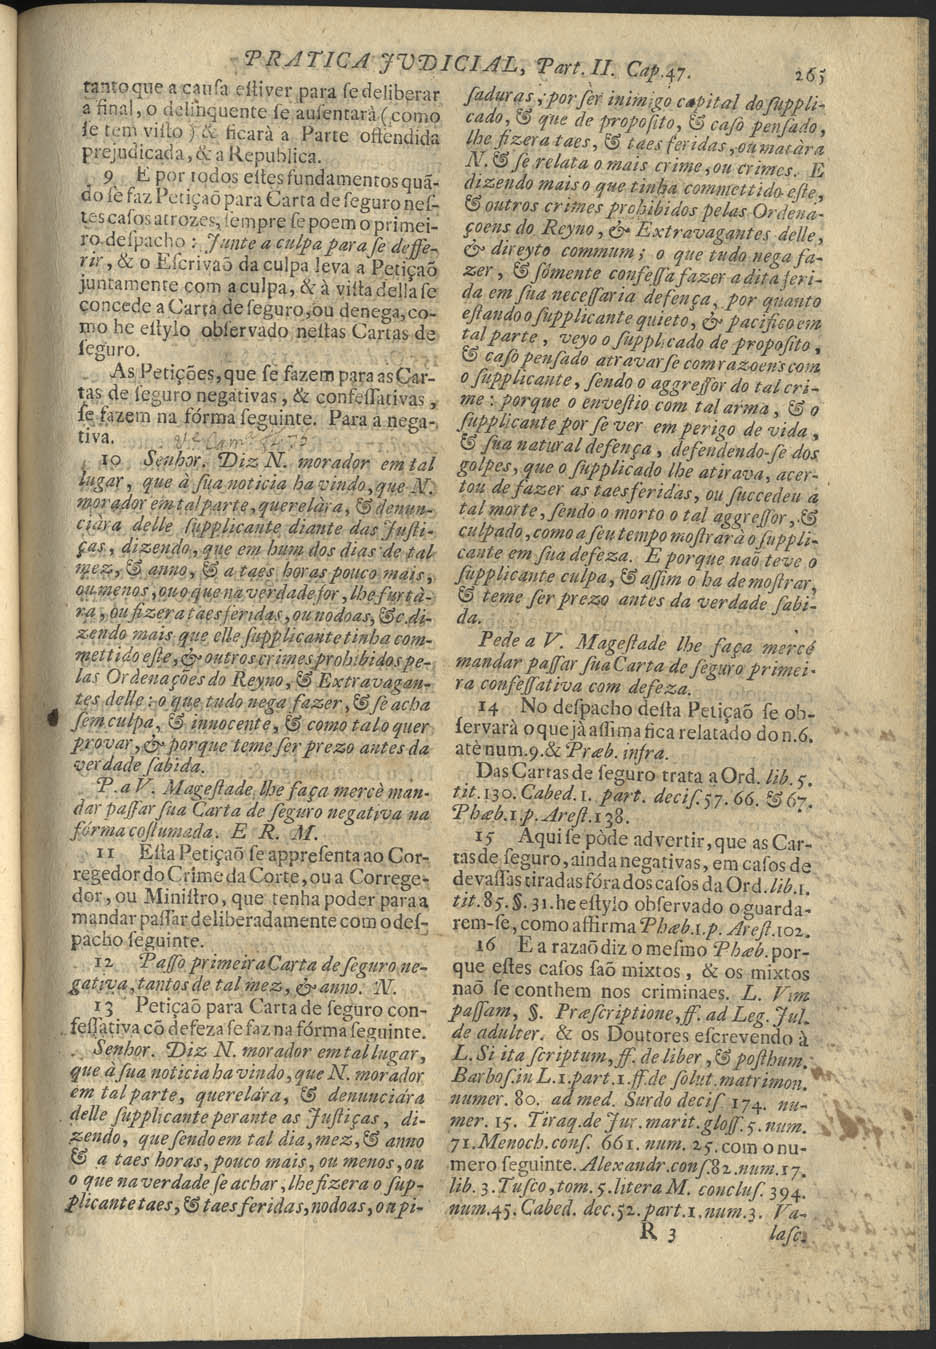 PRATICA JVDICIAL, Part. II. Cap. 47. 265
tanto que a cauſa eſtiver para ſe deliberar
a final, o delinquente ſe auſentarà (como
ſe tem viſto) & ficarà a Parte offendida
prejudicada, & a Republica.
9 E por todos eſtes fundamentos quã-
do ſe faz Petiçaõ para Carta de ſeguro neſ-
tes caſos atrozes, ſempre ſe poem o primei-
ro deſpacho: Junte a culpa para ſe deffe-
rir, & o Eſcrivaõ da culpa leva a Petiçaõ
juntamente com a culpa, & à viſta della ſe
concede a Carta de ſeguro, ou denega, co-
mo he eſtylo obſervado neſtas Cartas de
ſeguro.
As Petições, que ſe fazem para as Car-
tas de ſeguro negativas, & confeſſativas,
ſe fazem na fórma ſeguinte. Para a nega-
tiva.
10 Senhor. Diz N. morador em tal
lugar, que à ſua noticia ha vindo, que N.
morador em tal parte, querelàra, & denun-
ciára delle ſupplicante diante das Juſti-
ças, dizendo, que em hum dos dias de tal
mez, & anno, & a taes horas pouco mais,
ou menos, ou o que na verdade for, lhe furtà-
ra, ou fizera taes feridas, ou nodoas, &c. di-
zendo mais que elle ſupplicante tinha com-
mettido eſte, & outros crimes prohibidos pe-
las Ordenações do Reyno, & Extravagan-
tes delle: o que tudo nega fazer, & ſe acha
ſem culpa, & innocente, & como tal o quer
provar, & porque teme ſer prezo antes da
verdade ſabida.
P. a V. Mageſtade lhe faça mercè man-
dar paſſar ſua Carta de ſeguro negativa na
fórma coſtumada. E R. M.
11 Eſta Petiçaõ ſe appreſenta ao Cor-
regedor do Crime da Corte, ou a Correge-
dor, ou Miniſtro, que tenha poder para a
mandar paſſar deliberadamente com o deſ-
pacho ſeguinte.
12 Paſſo primeira Carta de ſeguro ne-
gativa, tantos de tal mez, & anno. N.
13 Petiçaõ para Carta de ſeguro con-
feſſativa cõ defeza ſe faz na fórma ſeguinte.
Senhor. Diz N. morador em tal lugar,
que à ſua noticia ha vindo, que N. morador
em tal parte, querelára, & denunciára
delle ſupplicante perante as Juſtiças, di-
zendo, que ſendo em tal dia, mez, & anno
& a taes horas, pouco mais, ou menos, ou
o que na verdade ſe achar, lhe fizera o ſup-
plicante taes, & taes feridas, nodoas, ou pi-
ſaduras; por ſer inimigo capital do ſuppli-
cado, & que de propoſito, & caſo penſado,
lhe fizera taes, & taes feridas, ou matàra
N. & ſe relata o mais crime, ou crimes. E
dizendo mais o que tinha commettido eſte,
& outros crimes prohibidos pelas Ordena-
çoens do Reyno, & Extravagantes delle,
& direyto commum; o que tudo nega fa-
zer, & ſómente confeſſa fazer a dita feri-
da em ſua neceſſaria defença, por quanto
eſtando o ſupplicante quieto, & pacifico em
tal parte, veyo o ſupplicado de propoſito,
& caſo penſado atravarſe com razoens com
o ſupplicante, ſendo o aggreſſor do tal cri-
me: porque o enveſtio com tal arma, & o
ſupplicante por ſe ver em perigo de vida,
& ſua natural defença, defendendo-ſe dos
golpes, que o ſupplicado lhe atirava, acer-
tou de fazer as taes feridas, ou ſuccedeu a
tal morte, ſendo o morto o tal aggreſſor, &
culpado, como a ſeu tempo moſtrarà o ſuppli-
cante em ſua defeza. E porque naõ teve o
ſupplicante culpa, & aſſim o ha de moſtrar,
& teme ſer prezo antes da verdade ſabi-
da.
Pede a V. Mageſtade lhe faça mercé
mandar paſſar ſua Carta de ſeguro primei-
ra confeſſativa com defeza.
14 No deſpacho deſta Petiçaõ ſe ob-
ſervarà o que jà aſſima fica relatado do n. 6.
atè num. 9. & Præb. infra.
Das Cartas de ſeguro trata a Ord. lib. 5.
tit. 130. Cabed. 1. part. deciſ. 57. 66. & 67.
Phæb. 1. p. Areſt. 138.
15 Aqui ſe pòde advertir, que as Car-
tas de ſeguro, ainda negativas, em caſos de
devaſſas tiradas fóra dos caſos da Ord. lib. 1.
tit. 85. §. 31. he eſtylo obſervado o guarda-
rem-ſe, como affirma Phæb. 1. p. Areſt. 102.
16 E a razaõ diz o meſmo Phæb. por-
que eſtes caſos ſaõ mixtos, & os mixtos
naõ ſe conthem nos criminaes. L. Vim
paſſam, §. Præſcriptione, ff. ad Leg. Jul.
de adulter. & os Doutores eſcrevendo à
L. Si ita ſcriptum, ff. de liber, & poſthum.
Barboſ. in L. 1. part. 1. ff. de ſolut. matrimon.
numer. 80. ad med. Surdo deciſ 174. nu-
mer. 15. Tiraq. de Jur. marit. gloſſ. 5. num.
71. Menoch. conſ. 661. num. 25. com o nu-
mero ſeguinte. Alexandr. conſ. 82. num. 17.
lib. 3. Tuſco, tom. 5. litera M. concluſ. 394.
num. 45. Cabed. dec. 52. part. 1. num. 3. Va-
R 3 laſc.